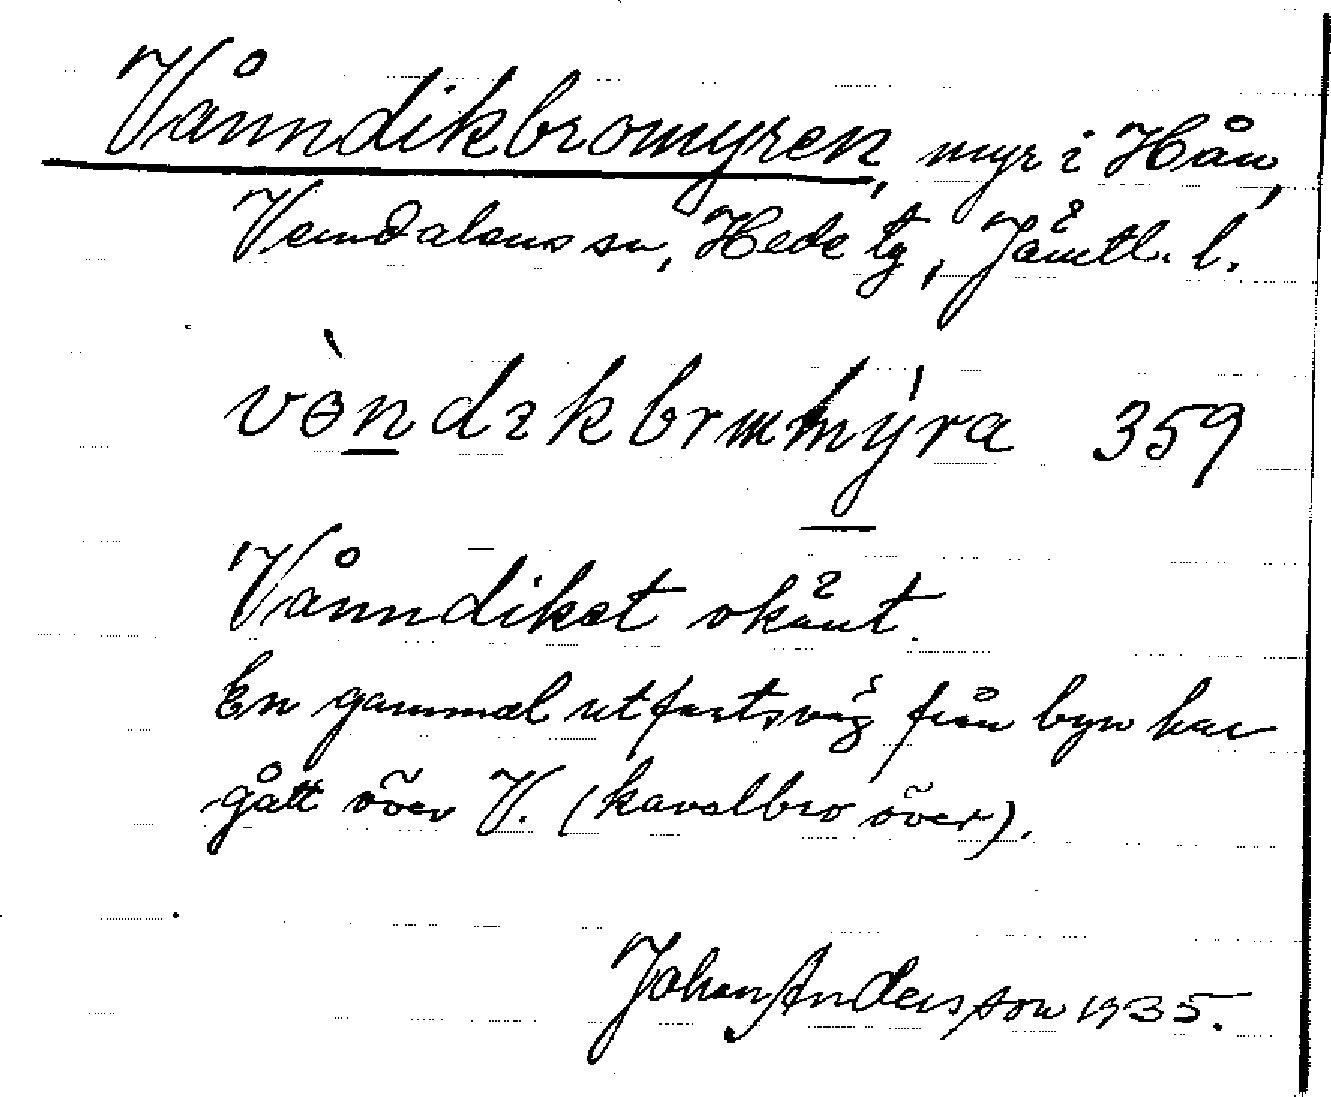 Vånndikbromyren, myr i Hån,
Vemdalens sn, Hede tg, Jämtl. l.
vèndıkbrɯmýra 359
Vånndiket okänt.
En gammal utfartsväg från byn har
gått över V. (kavelbro över).
Johan Andersson 1935.